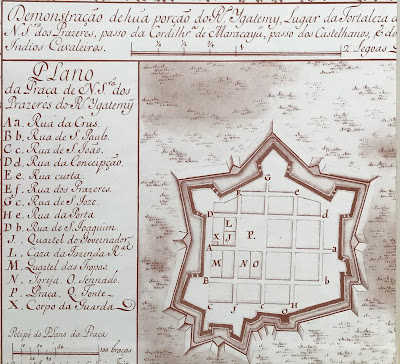 Demonstração de hũa porção do R.º Ygatemy, Lugar da Fortaleza d
N. S.ra dos Prazeres, passo da Cordilhr.ª de Maracayú, passo dos Castelhanos, E do
Indios Cavaleiros.
2. Legoas
Plano
da Praca de N. S.ra dos
Prazeres do R.º Ygatemÿ
A a. Rua da Crus.
B b. Rua de S. Paulo.
C c. Rua de S. João.
D d. Rua da Conceipção.
E e. Rua curta.
E f. Rua dos Prazeres.
G c. Rua de S. Joze.
H e. Rua da Porta
D b. Rua de S. Joaquim.
J. Quartel do Governador
L. Caza da Fazenda R.al
M. Quartel das Tropas.
N. Igreja O. Sennado.
P. Praça. Q. Fonte.
X. Corpo da Guarda
Petipe do Plano da Praça
100 braças
G
F
E
e
D
d
L
X
J
P.
A
a
M
N
O
B
b
C
c
f
O
H